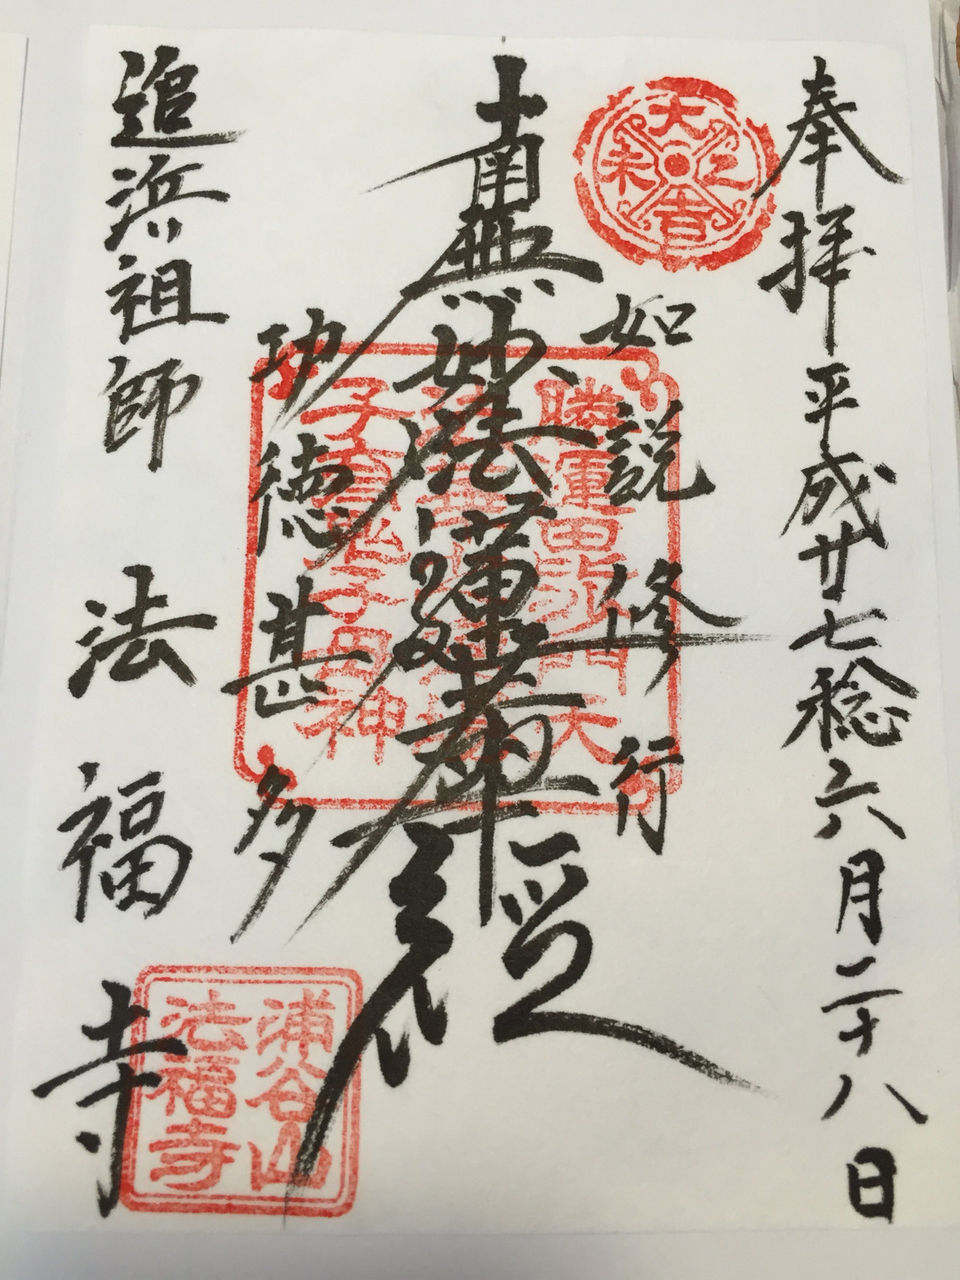 奉拝 平成廿七稔六月二十八日
如説修行
南無妙法蓮華経
功徳甚多
追浜祖師 法福寺
大吉
浦谷山
法福寺
子育鬼子母神